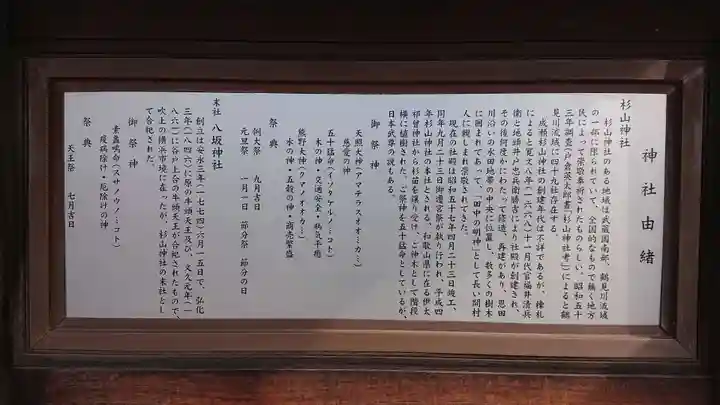 神社由緒
杉山神社
杉山神社のある地域は武蔵国南部、鶴見川流域
の一部に限られていて、全国的なもので無く地方
民によって崇敬奉祈されたものらしい。昭和五十
三年調査(戸倉英太郎著『杉山神社考』)によると鶴
見川流域に四十九社存在する。
成瀬杉山神社の創建年代は不詳であるが、棟札
によると寛文八年(一六六八)十一月代官福井清兵
衛と地頭井戸忠兵衛勝吉により社殿が創建され、
その後何度かにわたって修造、再建があり、恩田
川沿いの水田地帯の中央に位置し、数多くの樹木
に囲まれてあって、「田中の明神」として長い間村
人に親しまれ崇敬されてきた。
現在の社殿は昭和五十七年四月二十三日竣工、
同年九月二十三日御遷宮祭が執り行われ、平成四
年杉山神社の本社とされる、和歌山県に在る伊太
祁曾神社から杉苗を譲り受け、ご神木として階段
横に植樹された。ご祭神を五十猛命としているが、
日本武尊の説もある。
御祭神
天照大神(アマテラスオオミカミ)
慈愛の神
五十猛命(イソタケルノミコト)
木の神・交通安全・病気平癒
熊野大神(クマノオオカミ)
水の神・五穀の神・商売繁盛
祭典
例大祭 九月吉日
元旦祭 一月一日 節分祭 節分の日
末社 八坂神社
創立は安永三年(一七七四)六月一五日で、弘化
三年(一八四六)に原の牛頭天王及び、文久元年(一
八六一)に谷戸上谷の牛頭天王が合祀されたもので、
吹上の横浜市境に在ったが、杉山神社の末社とし
て合祀された。
御祭神
素盞嗚命(スサノウノミコト)
疫病除け・厄除けの神
祭典
天王祭 七月吉日